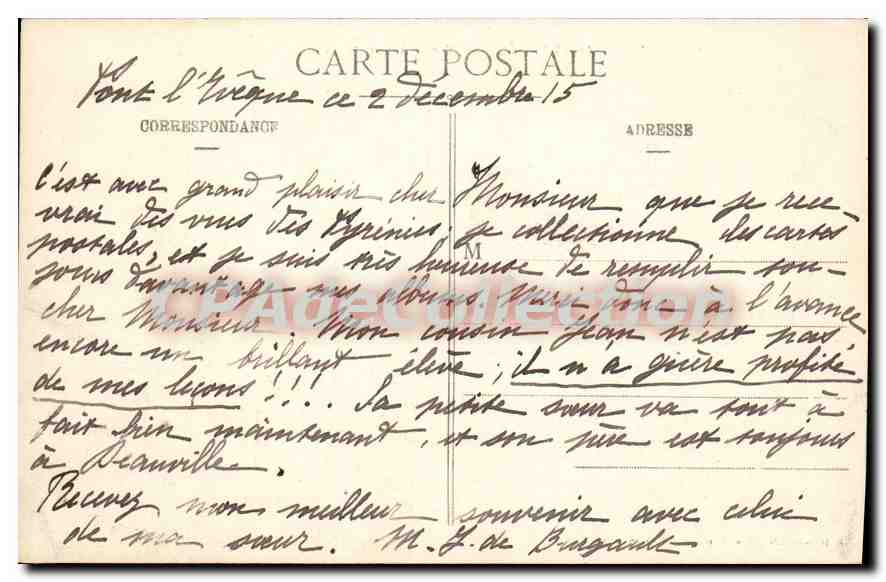 CARTE POSTALE
Pont l'Evêque ce 2 décembre 15
CORRESPONDANCE
ADRESSE
C'est avec grand plaisir cher Monsieur que je rece-
vrai des vues des Pyrénées, je collectionne les cartes
postales, et je suis très heureuse de remplir tou-
M
jours davantage mes albums. Merci donc à l'avance
CPAdeCollection
cher Monsieur. Mon cousin Jean n'est pas
encore un brillant élève ; il n'a guère profité
de mes leçons !!!. Sa petite sœur va tout à
fait bien maintenant, et son père est toujours
à Deauville.
Recevez mon meilleur souvenir avec celui
de ma sœur. M. J. de Burgault